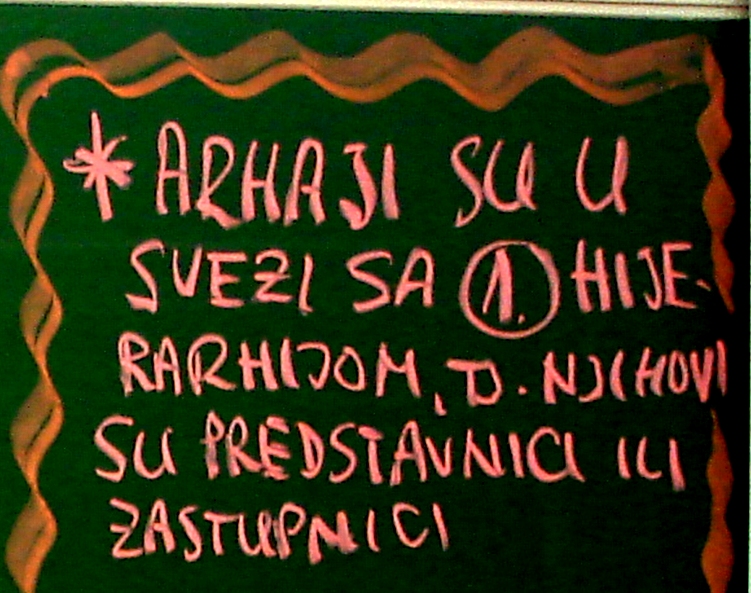 * ARHAJI SU U
SVEZI SA 1. HIJE-
RARHIJOM, TJ. NJIHOVI
SU PREDSTAVNICI ILI
ZASTUPNICI